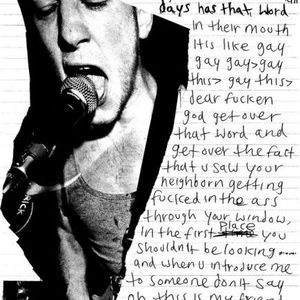 days has that word
In their mouth
It is like gay
gay gay>gay
this> gay this>
dear fucken
god get over
that word and
get over the fact
that u saw your
neighborn getting
fucked in the ass
through your window,
Place
In the first you
shouldnt be looking....
and when u introduce me
to someone dont say
oh this is my friend